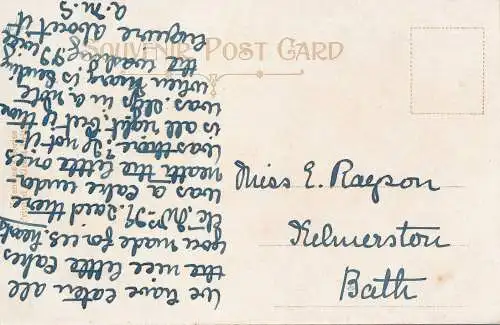 SOUVENIR POST CARD
We have eaten all
the nice little cakes
you made for us. thanks
said there
was a cake under-
neath the little ones
was there: not it
is all right, but if there
was. slip in a note
when Mary is sending
the washing
enquire about it
A.M.S
Miss E. Rayson
Kelmerston
Bath